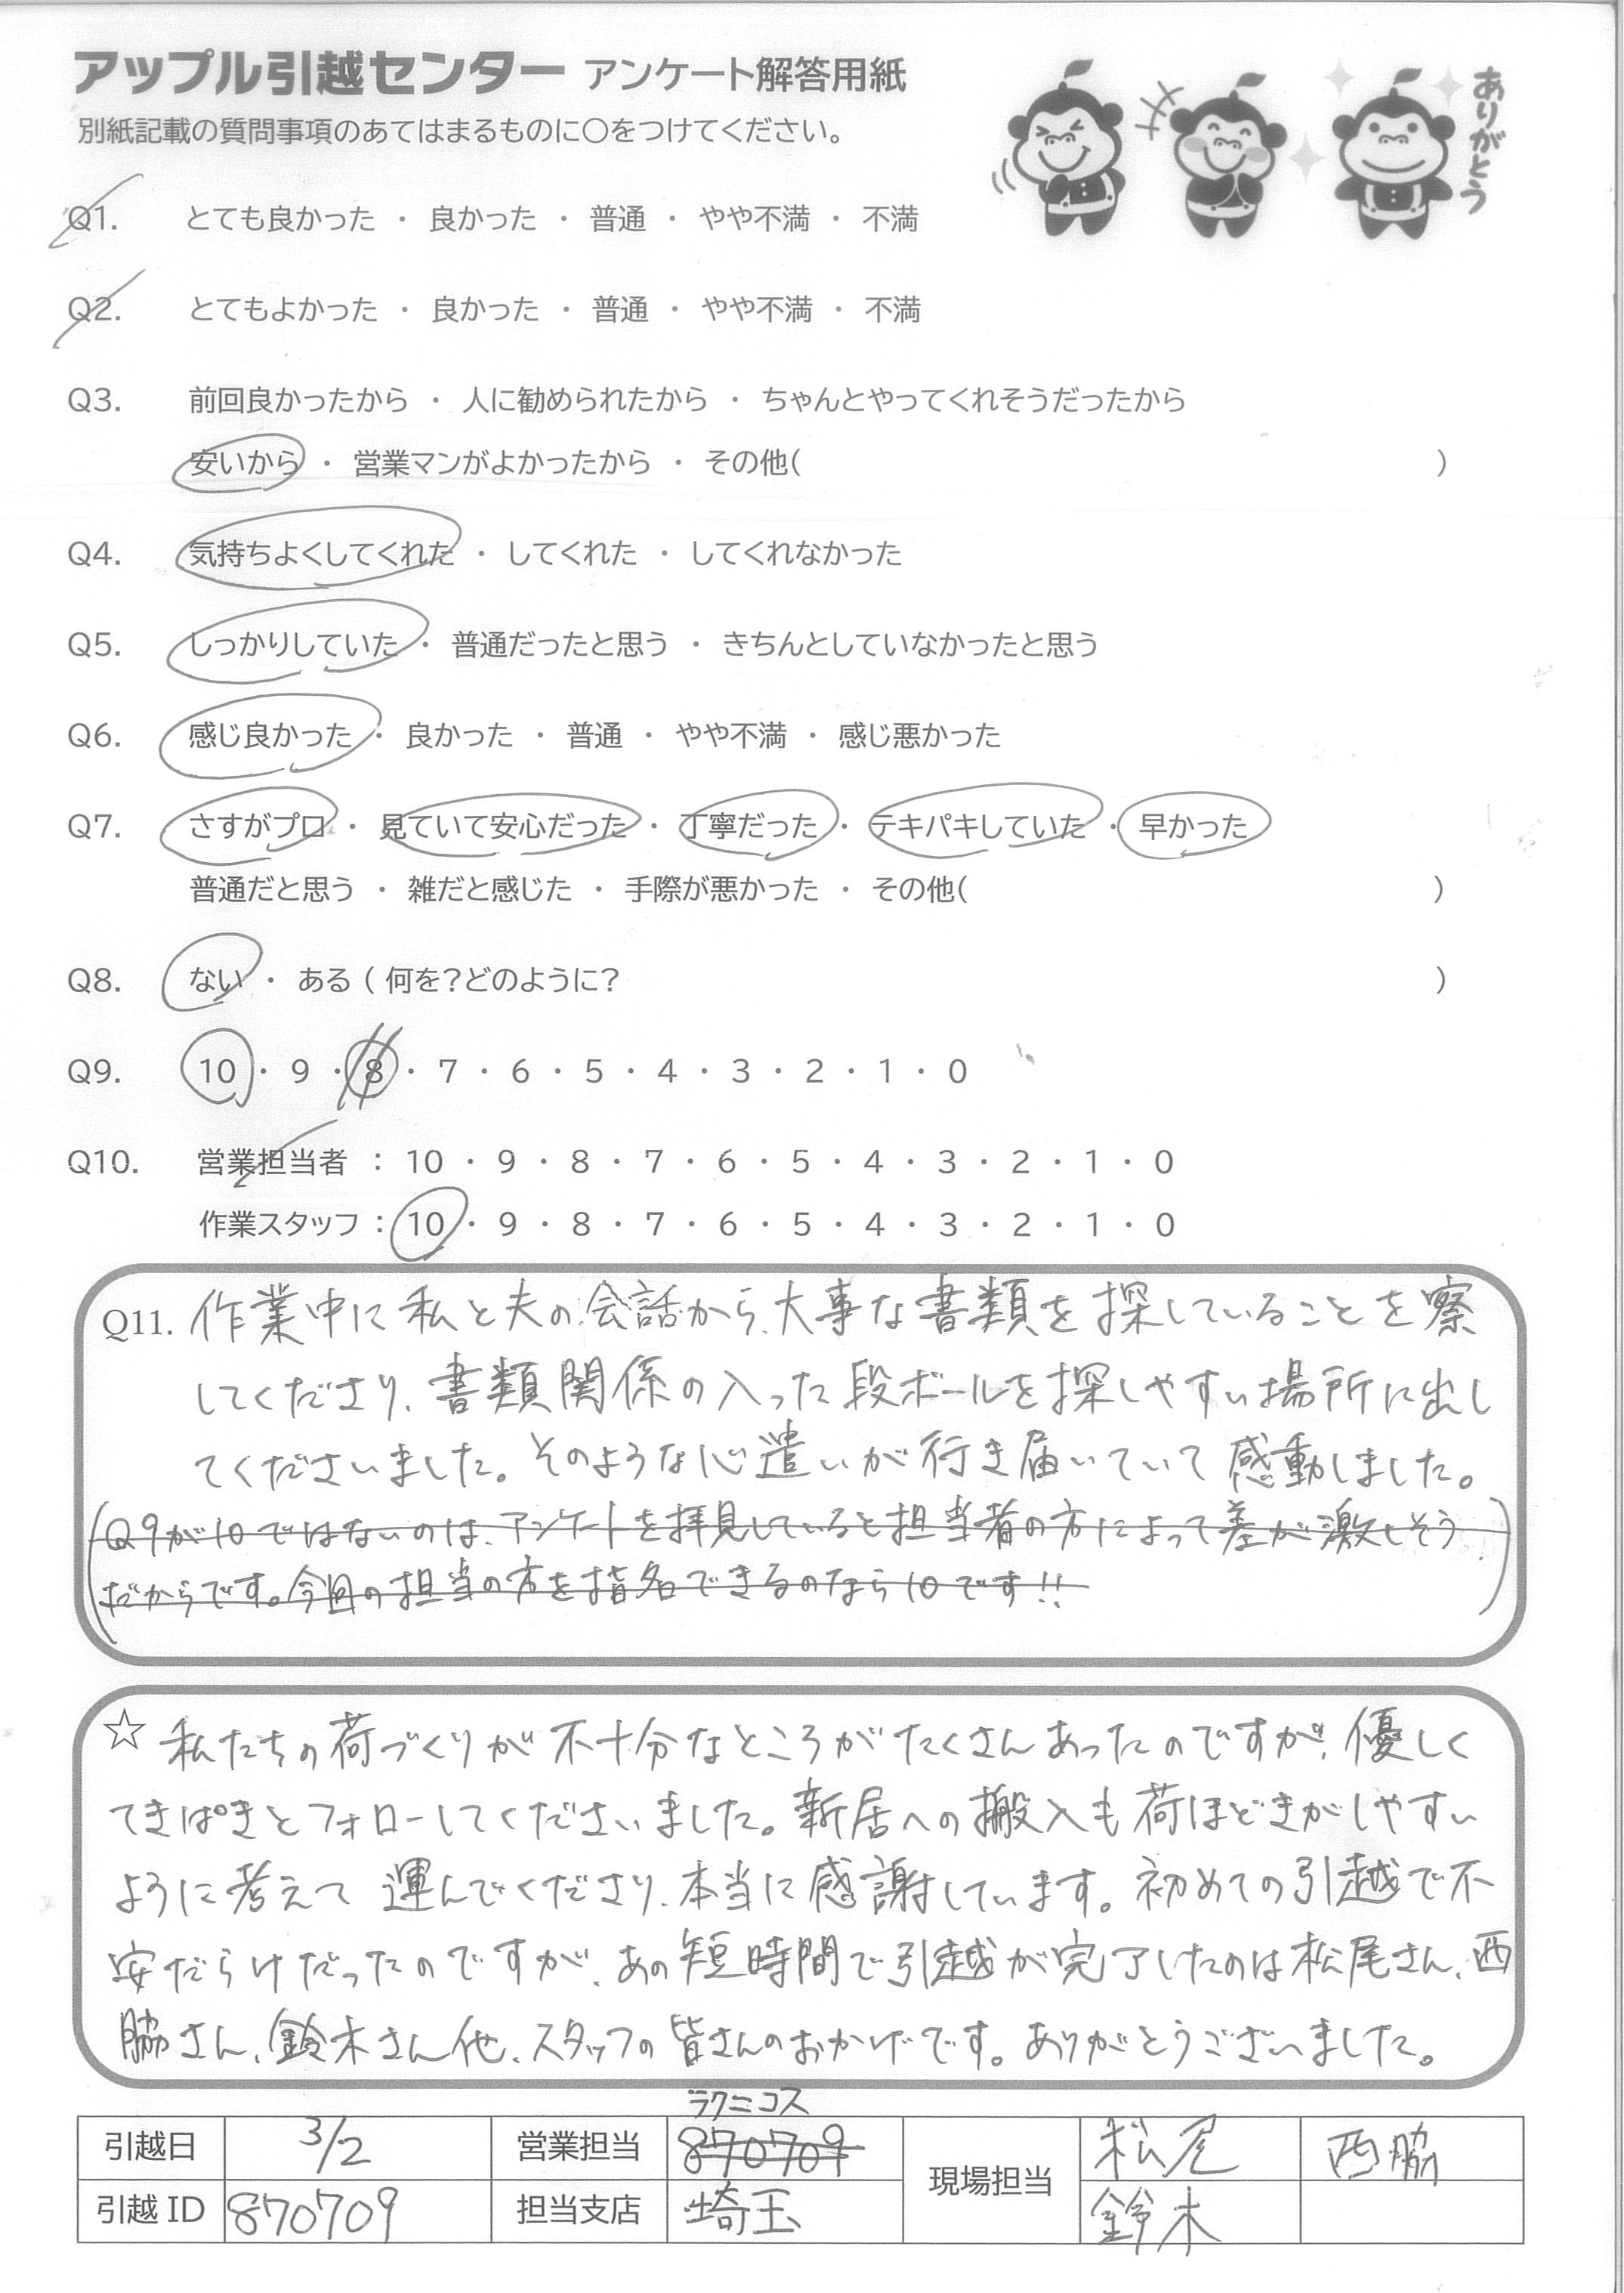 アップル引越センター アンケート解答用紙
別紙記載の質問事項のあてはまるものに○をつけてください。
ありがとう
Q1. とても良かった ・ 良かった ・ 普通 ・ やや不満 ・ 不満
Q2. とてもよかった ・ 良かった ・ 普通 ・ やや不満 ・ 不満
Q3. 前回良かったから ・ 人に勧められたから ・ ちゃんとやってくれそうだったから
安いから ・ 営業マンがよかったから ・ その他( )
Q4. 気持ちよくしてくれた ・ してくれた ・ してくれなかった
Q5. しっかりしていた ・ 普通だったと思う ・ きちんとしていなかったと思う
Q6. 感じ良かった ・ 良かった ・ 普通 ・ やや不満 ・ 感じ悪かった
Q7. さすがプロ ・ 見ていて安心だった ・ 丁寧だった ・ テキパキしていた ・ 早かった
普通だと思う ・ 雑だと感じた ・ 手際が悪かった ・ その他( )
Q8. ない ・ ある ( 何を?どのように? )
Q9. 10 ・ 9 ・ 8 ・ 7 ・ 6 ・ 5 ・ 4 ・ 3 ・ 2 ・ 1 ・ 0
Q10. 営業担当者 : 10 ・ 9 ・ 8 ・ 7 ・ 6 ・ 5 ・ 4 ・ 3 ・ 2 ・ 1 ・ 0
作業スタッフ : 10 ・ 9 ・ 8 ・ 7 ・ 6 ・ 5 ・ 4 ・ 3 ・ 2 ・ 1 ・ 0
Q11. 作業中に私と夫の会話から、大事な書類を探していることを察
してくださり、書類関係の入った段ボールを探しやすい場所に出し
てくださいました。そのような心遣いが行き届いていて感動しました。
(Q9が10ではないのは、アンケートを拝見していると担当者の方によって差が激しそう
だからです。今回の担当の方を指名できるのなら10です!!)
☆ 私たちの荷づくりが不十分なところがたくさんあったのですが、優しく
てきぱきとフォローしてくださいました。新居への搬入も荷ほどきがしやすい
ように考えて運んでくださり、本当に感謝しています。初めての引越で不
安だらけだったのですが、あの短時間で引越が完了したのは松尾さん、西
脇さん、鈴木さん他、スタッフの皆さんのおかげです。ありがとうございました。
ラクニコス
引越日 3/2 営業担当 870709 現場担当 松尾 西脇
引越ID 870709 担当支店 埼玉 鈴木